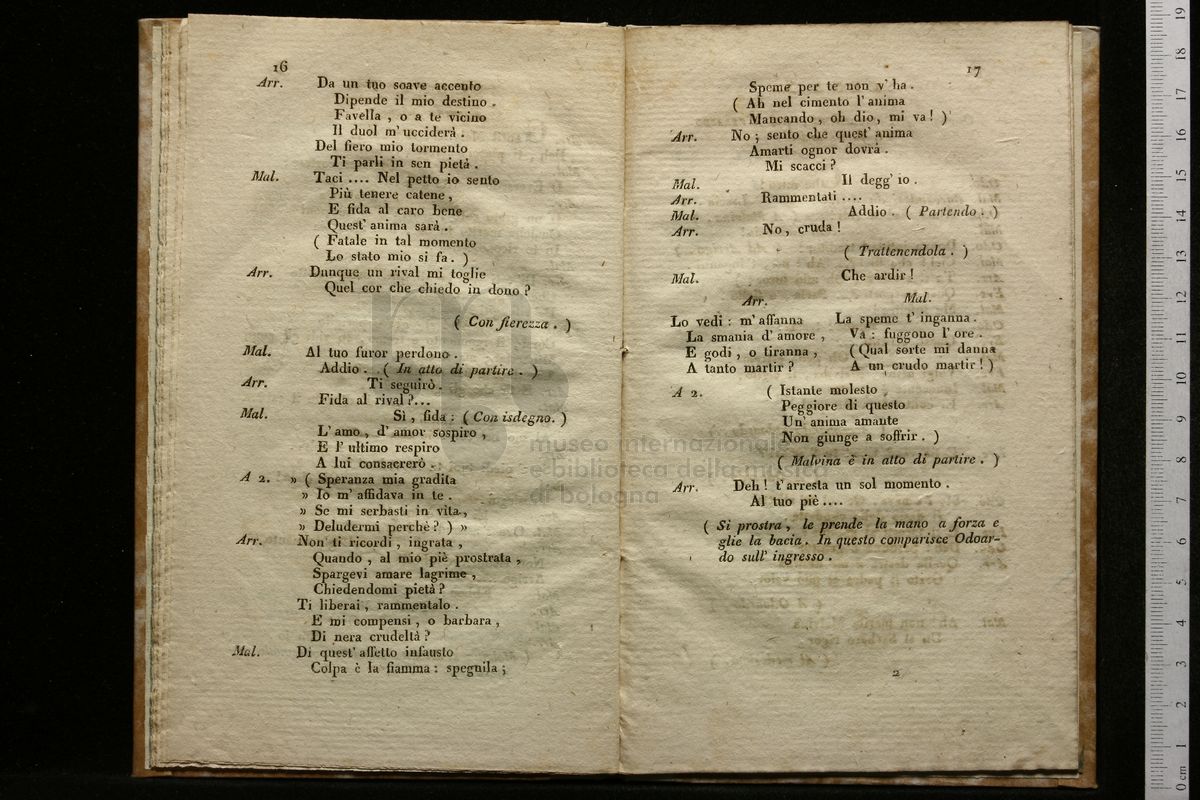 16
Arr. Da un tuo soave accento
Dipende il mio destino .
Favella , o a te vicino
Il duol m' ucciderà .
Del fiero mio tormento
Ti parli in sen pietà .
Mal. Taci .... Nel petto io sento
Più tenere catene ,
E fida al caro bene
Quest' anima sarà .
( Fatale in tal momento
Lo stato mio si fa . )
Arr. Dunque un rival mi toglie
Quel cor che chiedo in dono ?
( Con fierezza . )
Mal. Al tuo furor perdono .
Addio . . ( In atto di partire . )
Arr. Ti seguirò .
Fida al rival ?...
Mal. Sì , fida : ( Con isdegno. )
L' amo , d' amor sospiro ,
E l' ultimo respiro
A lui consacrerò .
A 2. » ( Speranza mia gradita
» Io m' affidava in te .
» Se mi serbasti in vita ,
» Deludermi perchè ? ) »
Arr. Non ti ricordi , ingrata ,
Quando , al mio piè prostrata ,
Spargevi amare lagrime ,
Chiedendomi pietà ?
Ti liberai , rammentalo .
E mi compensi , o barbara ,
Di nera crudeltà ?
Mal. Di quest' affetto infausto
Colpa è la fiamma : spegnila ;
17
Speme per te non v' ha .
( Ah nel cimento l' anima
Mancando , oh dio , mi va ! )
Arr. No ; sento che quest' anima
Amarti ognor dovrà .
Mi scacci ?
Mal. Il degg' io .
Arr. Rammentati ....
Mal. Addio . ( Partendo . )
Arr. No , cruda !
( Trattenendola . )
Mal. Che ardir !
Arr. Mal.
Lo vedi : m' affanna La speme t' inganna .
La smania d' amore , Va : fuggono l' ore .
E godi , o tiranna , ( Qual sorte mi danna
A tanto martir ? A un crudo martir ! )
A 2. ( Istante molesto ,
Peggiore di questo
Un' anima amante
Non giunge a soffrir . )
( Malvina è in atto di partire . )
Arr. Deh ! t' arresta un sol momento .
Al tuo piè ....
( Si prostra , le prende la mano a forza e
glie la bacia . In questo comparisce Odoar-
do sull' ingresso .
2
museo internazionale
e biblioteca della musica
di bologna
0 cm 1 2 3 4 5 6 7 8 9 10 11 12 13 14 15 16 17 18 19